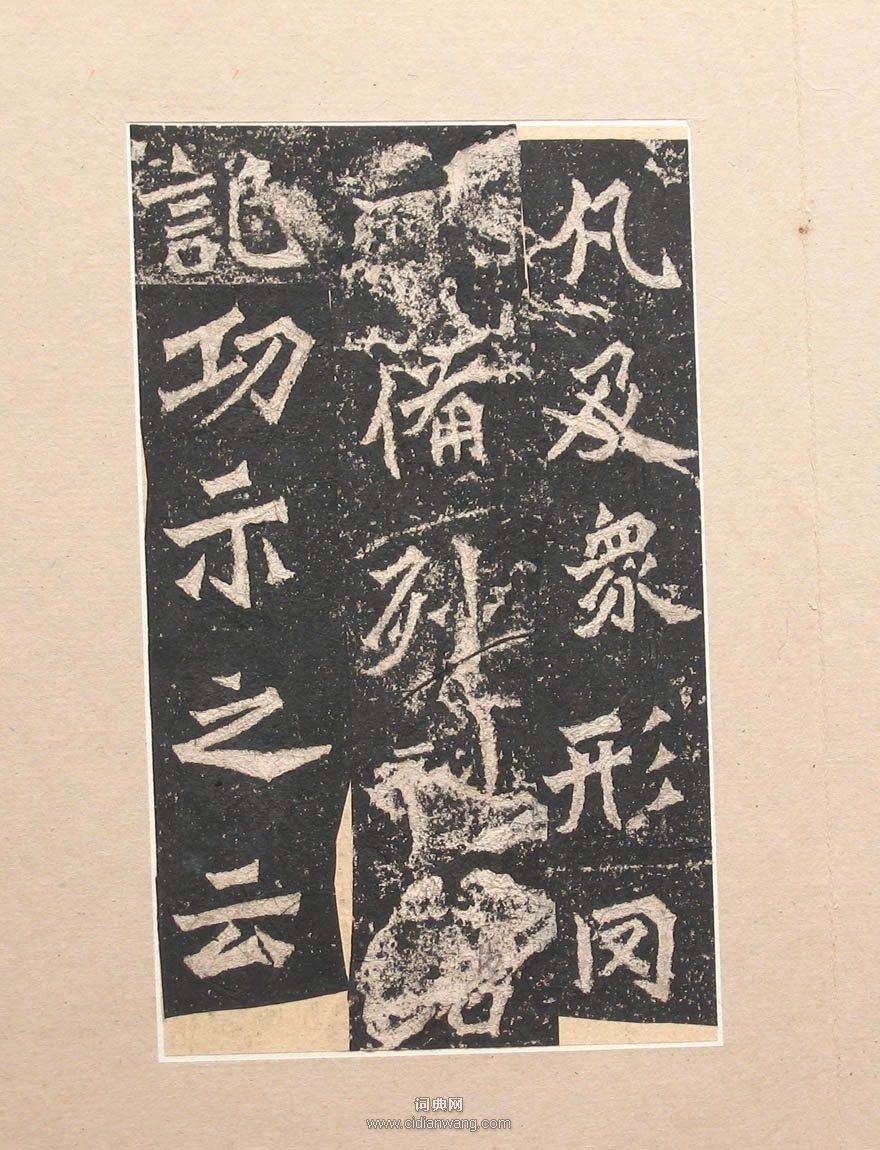 凡及衆形罔
備列
記功示之云
词典网
www.cidianwang.com